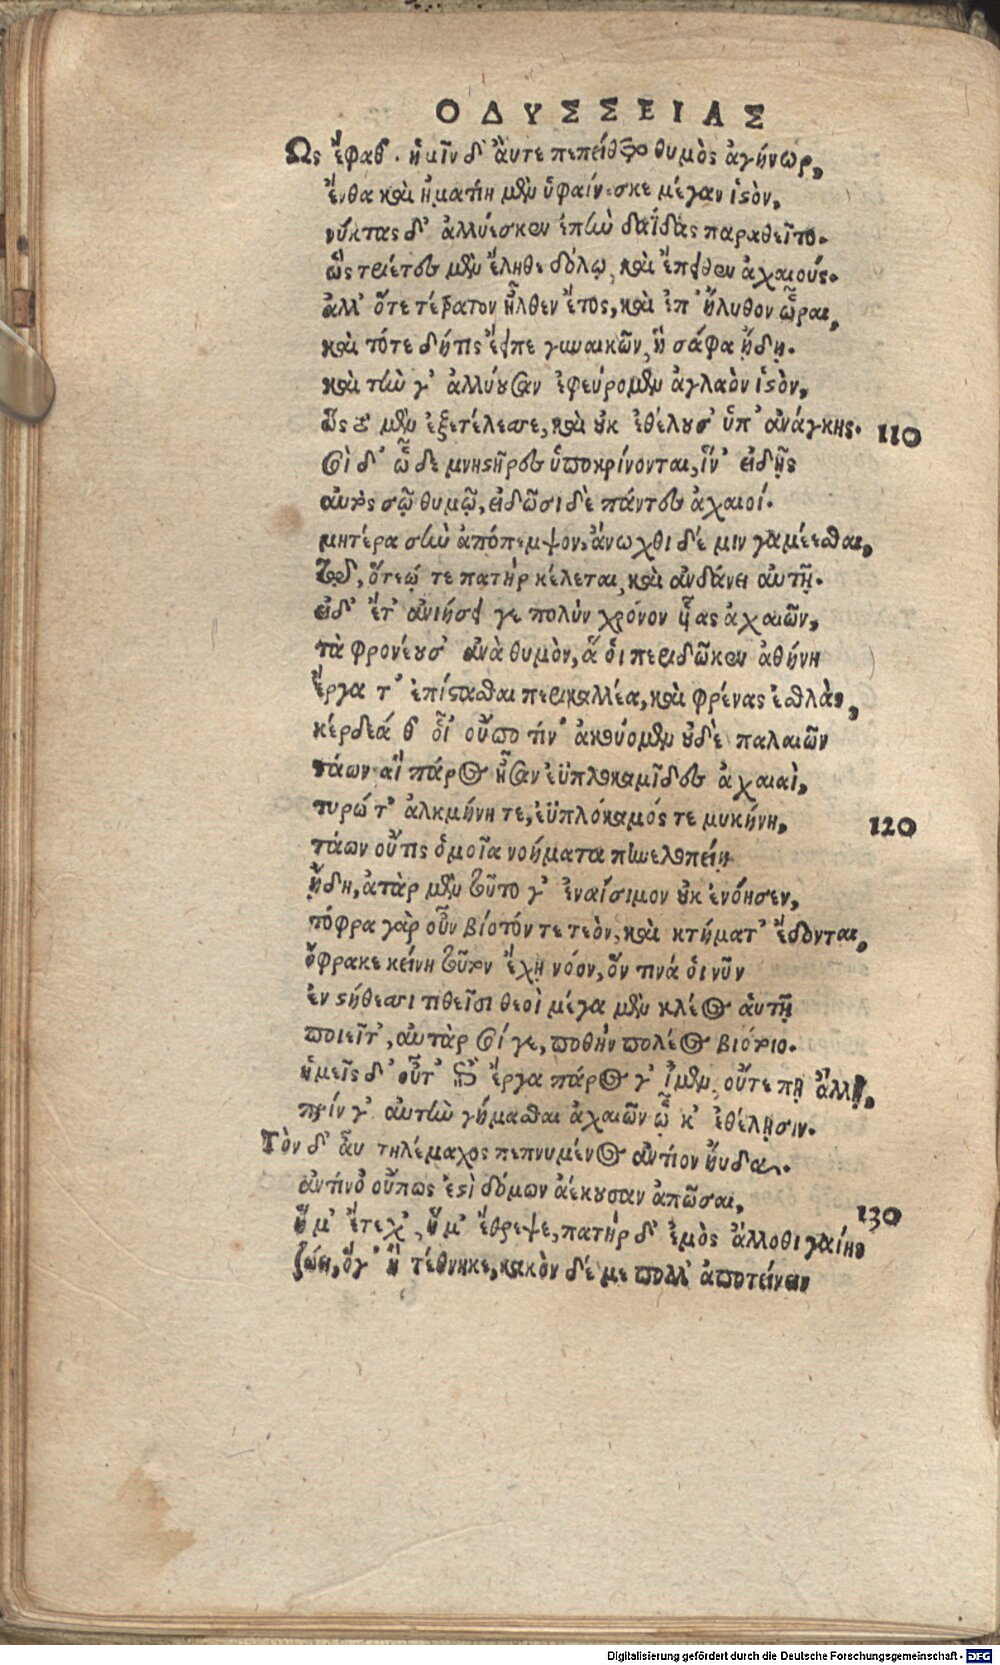 ΟΔΥΣΣΕΙΑΣ
Ὣς ἔφατ'. ἡμῖν δ' ἂυτε πεπείθετο θυμὸς ἀγήνωρ,
ἔνθα καὶ ἠματίη μὲν ὑφαίνεσκε μέγαν ἱστὸν,
νύκτας δ' ἀλλύεσκεν ἐπὴν δαΐδας παραθεῖτο.
ὣς τρίετες μὲν ἔληθε δόλῳ, καὶ ἔπειθεν ἀχαιούς.
ἀλλ' ὅτε τέτρατον ἦλθεν ἔτος, καὶ ἐπ' ἤλυθον ὧραι,
καὶ τότε δήτις ἔειπε γυναικῶν, ἣ σάφα ᾔδη.
καὶ τὴν γ' ἀλλύουσαν ἐφεύρομεν ἀγλαὸν ἱστὸν,
ὣς τὸ μὲν ἐξετέλεσσε, καὶ οὐκ ἐθέλουσ' ὑπ' ἀνάγκης. 110
σοὶ δ' ὧδε μνηστῆρες ὑποκρίνονται, ἵν' εἰδῇς
αὐτὸς σῷ θυμῷ, εἰδῶσι δὲ πάντες ἀχαιοί.
μητέρα σὴν ἀπόπεμψον, ἄνωχθι δέ μιν γαμέεσθαι,
τῷ, ὅτεῴ τε πατὴρ κέλεται, καὶ ἁνδάνει αὐτῇ.
εἰ δ' ἔτ' ἀνιήσει γε πολὺν χρόνον υἷας ἀχαιῶν,
τὰ φρονέουσ' ἀνὰ θυμὸν, ἅ οἱ περιδῶκεν ἀθήνη
ἔργα τ' ἐπίστασθαι περικαλλέα, καὶ φρένας ἐσθλὰς,
κέρδεά θ' οἷ' οὔπω τίν' ἀκούομεν οὐδὲ παλαιῶν
τάων αἳ πάρος ἦσαν ἐϋπλοκαμῖδες ἀχαιαὶ,
τυρώ τ' ἀλκμήνη τε, ἐϋπλόκαμός τε μυκήνη, 120
τάων οὔτις ὁμοῖα νοήματα πηνελοπείῃ
ᾔδη, ἀτὰρ μὲν τοῦτο γ' ἐναίσιμον οὐκ ἐνόησεν,
τόφρα γὰρ οὖν βίοτόν τε τεὸν, καὶ κτήματ' ἔδονται,
ὄφρα κε κείνη τοῦτον ἔχῃ νόον, ὅν τινά οἱ νῦν
ἐν στήθεσσι τιθεῖσι θεοὶ μέγα μὲν κλέος ἀυτῇ
ποιεῖτ', αὐτὰρ σοί γε, ποθὴν πολέος βιότοιο.
ἡμεῖς δ' οὔτ' ἐπὶ ἔργα πάρος γ' ἴμεν, οὔτε πῃ ἄλλῃ,
πρίν γ' αὐτὴν γήμασθαι ἀχαιῶν ᾧ κ' ἐθέλῃσιν.
Τὸν δ' ἆυ τηλέμαχος πεπνυμένος ἀντίον ηὔδα.
ἀντίνο' οὔπως ἐστὶ δόμων ἀέκουσαν ἀπῶσαι, 130
ἥ μ' ἔτεχ', ἥ μ' ἔθρεψε, πατὴρ δ' ἐμὸς ἄλλοθι γαίης
ζώει, ὅγ' ἢ τέθνηκε, κακὸν δέ με πολλ' ἀποτείνειν
Digitalisierung gefördert durch die Deutsche Forschungsgemeinschaft - DFG